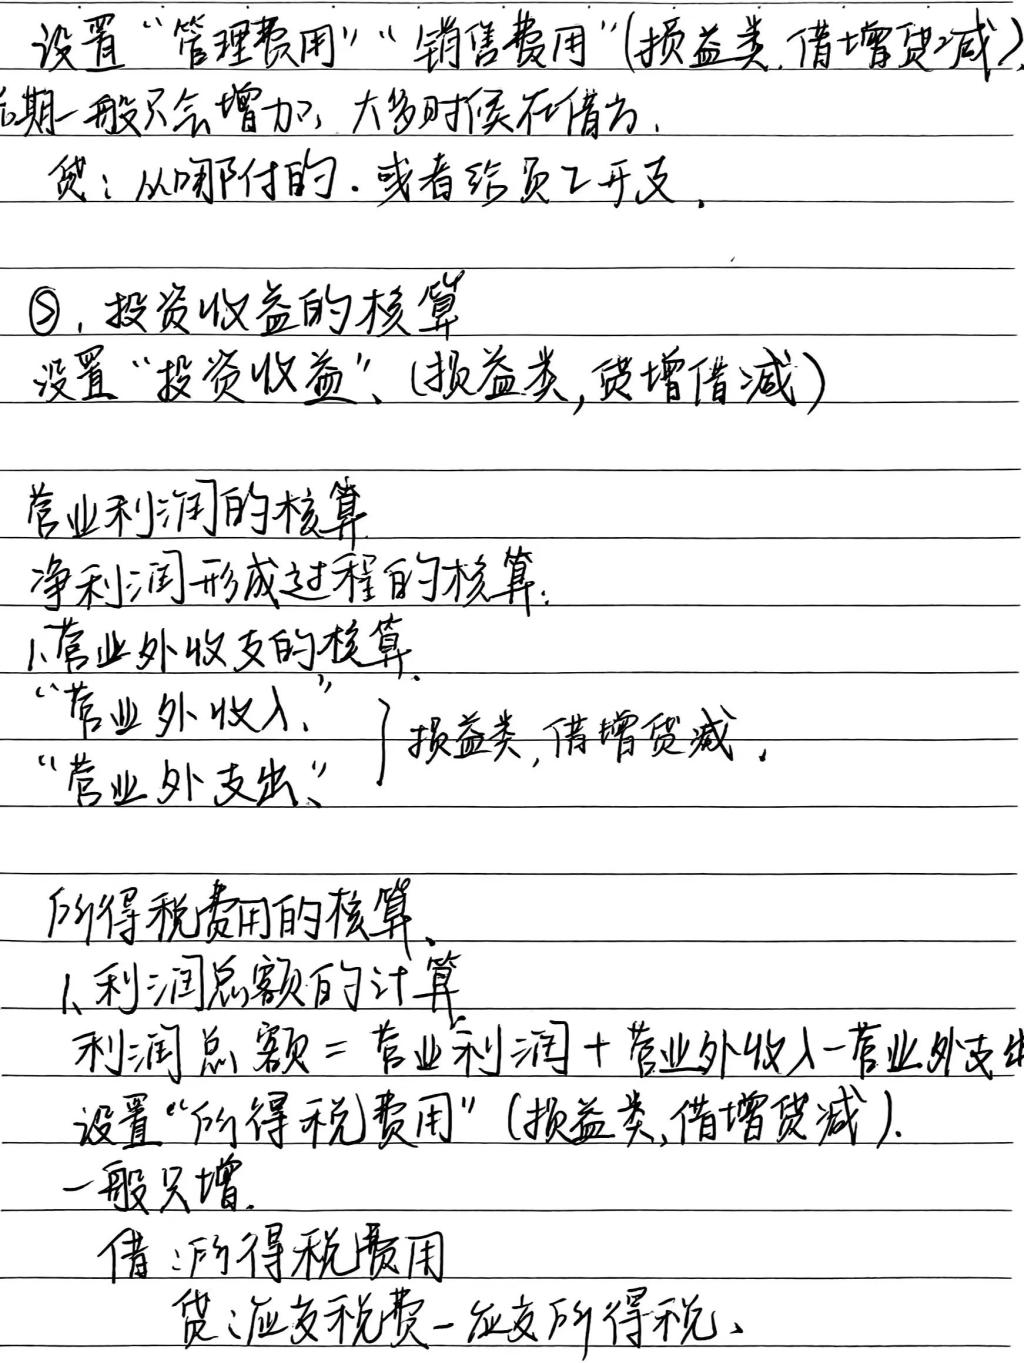 设置“管理费用”“销售费用”(损益类,借增贷减)、
后期一般只会增加,大多时候在借方.
贷:从哪付的.或者给员工开支.
⑤.投资收益的核算
设置“投资收益”、(损益类,贷增借减)
营业利润的核算
净利润形成过程的核算.
1、营业外收支的核算.
“营业外收入、”
“营业外支出、”
} 损益类,借增贷减.
所得税费用的核算、
1、利润总额的计算.
利润总额=营业利润+营业外收入-营业外支出
设置“所得税费用”(损益类,借增贷减).
一般只增.
借:所得税费用
贷:应交税费-应交所得税、